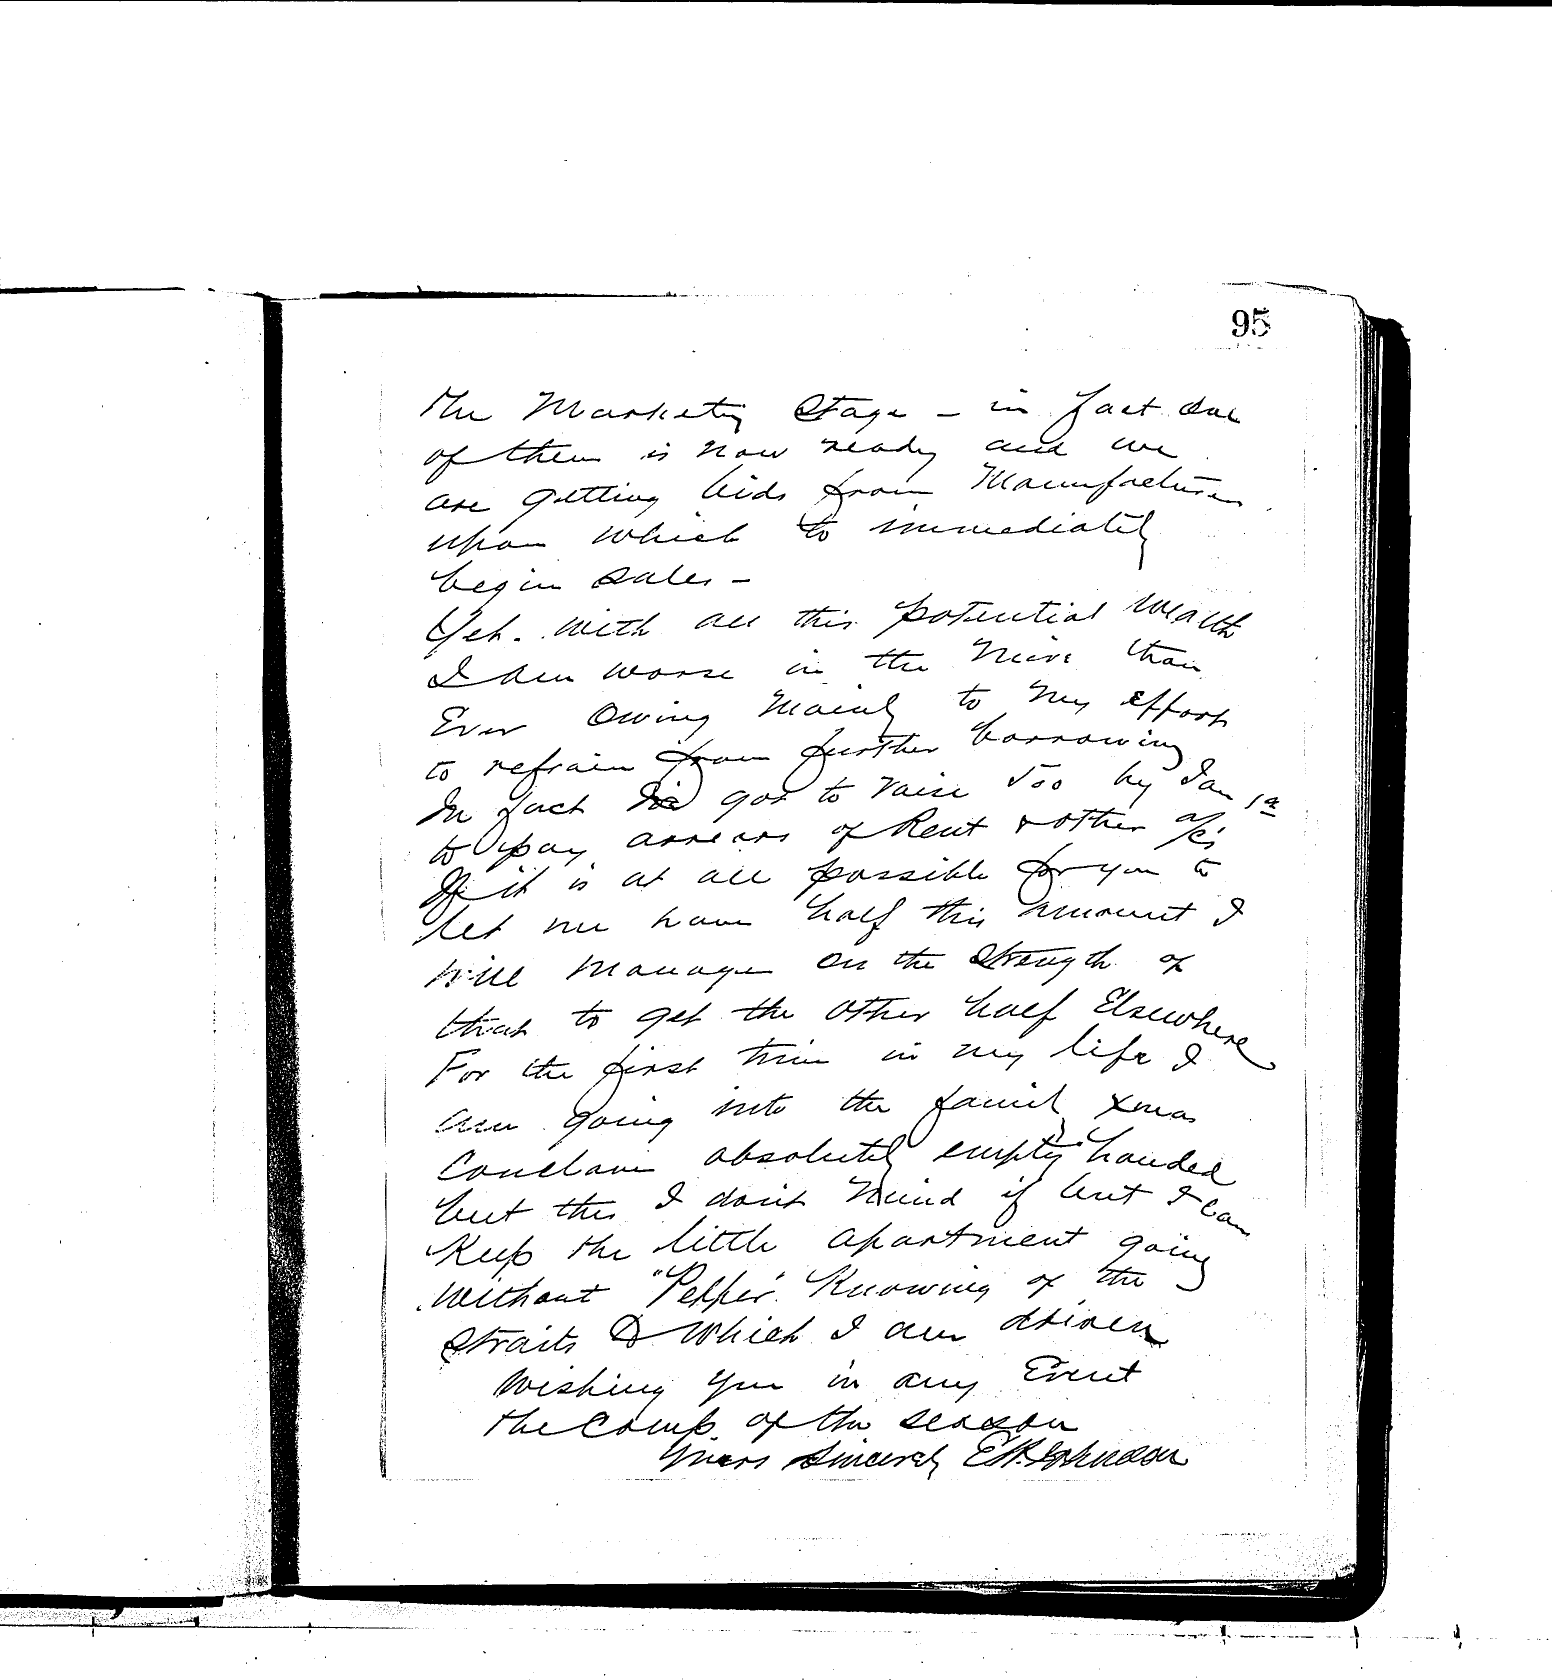 95
the Marketing Stage - in fact one
of them is now ready and we
are getting bids from Manufacturers
upon which to immediately
begin sales -
Yet. with all this potential wealth
I am worse in the mire than
Ever Owing Mainly to my effort
to refrain from further borrowing
In fact I've got to raise 500 by Jan 1st
to pay arrears of Rent & other a/c's
If it is at all possible for you to
let me have half this amount I
will manage on the Strength of
that to get the other half Elsewhere
For the first time in my life I
am going into the family Xmas
Conclave absolutely empty handed
but this I don't mind if but I can
Keep the little apartment going
without "Pepper" Knowing of the
Straits to which I am driven
Wishing you in any Event
the Comp. of the season
Yours Sincerely E H Johnson